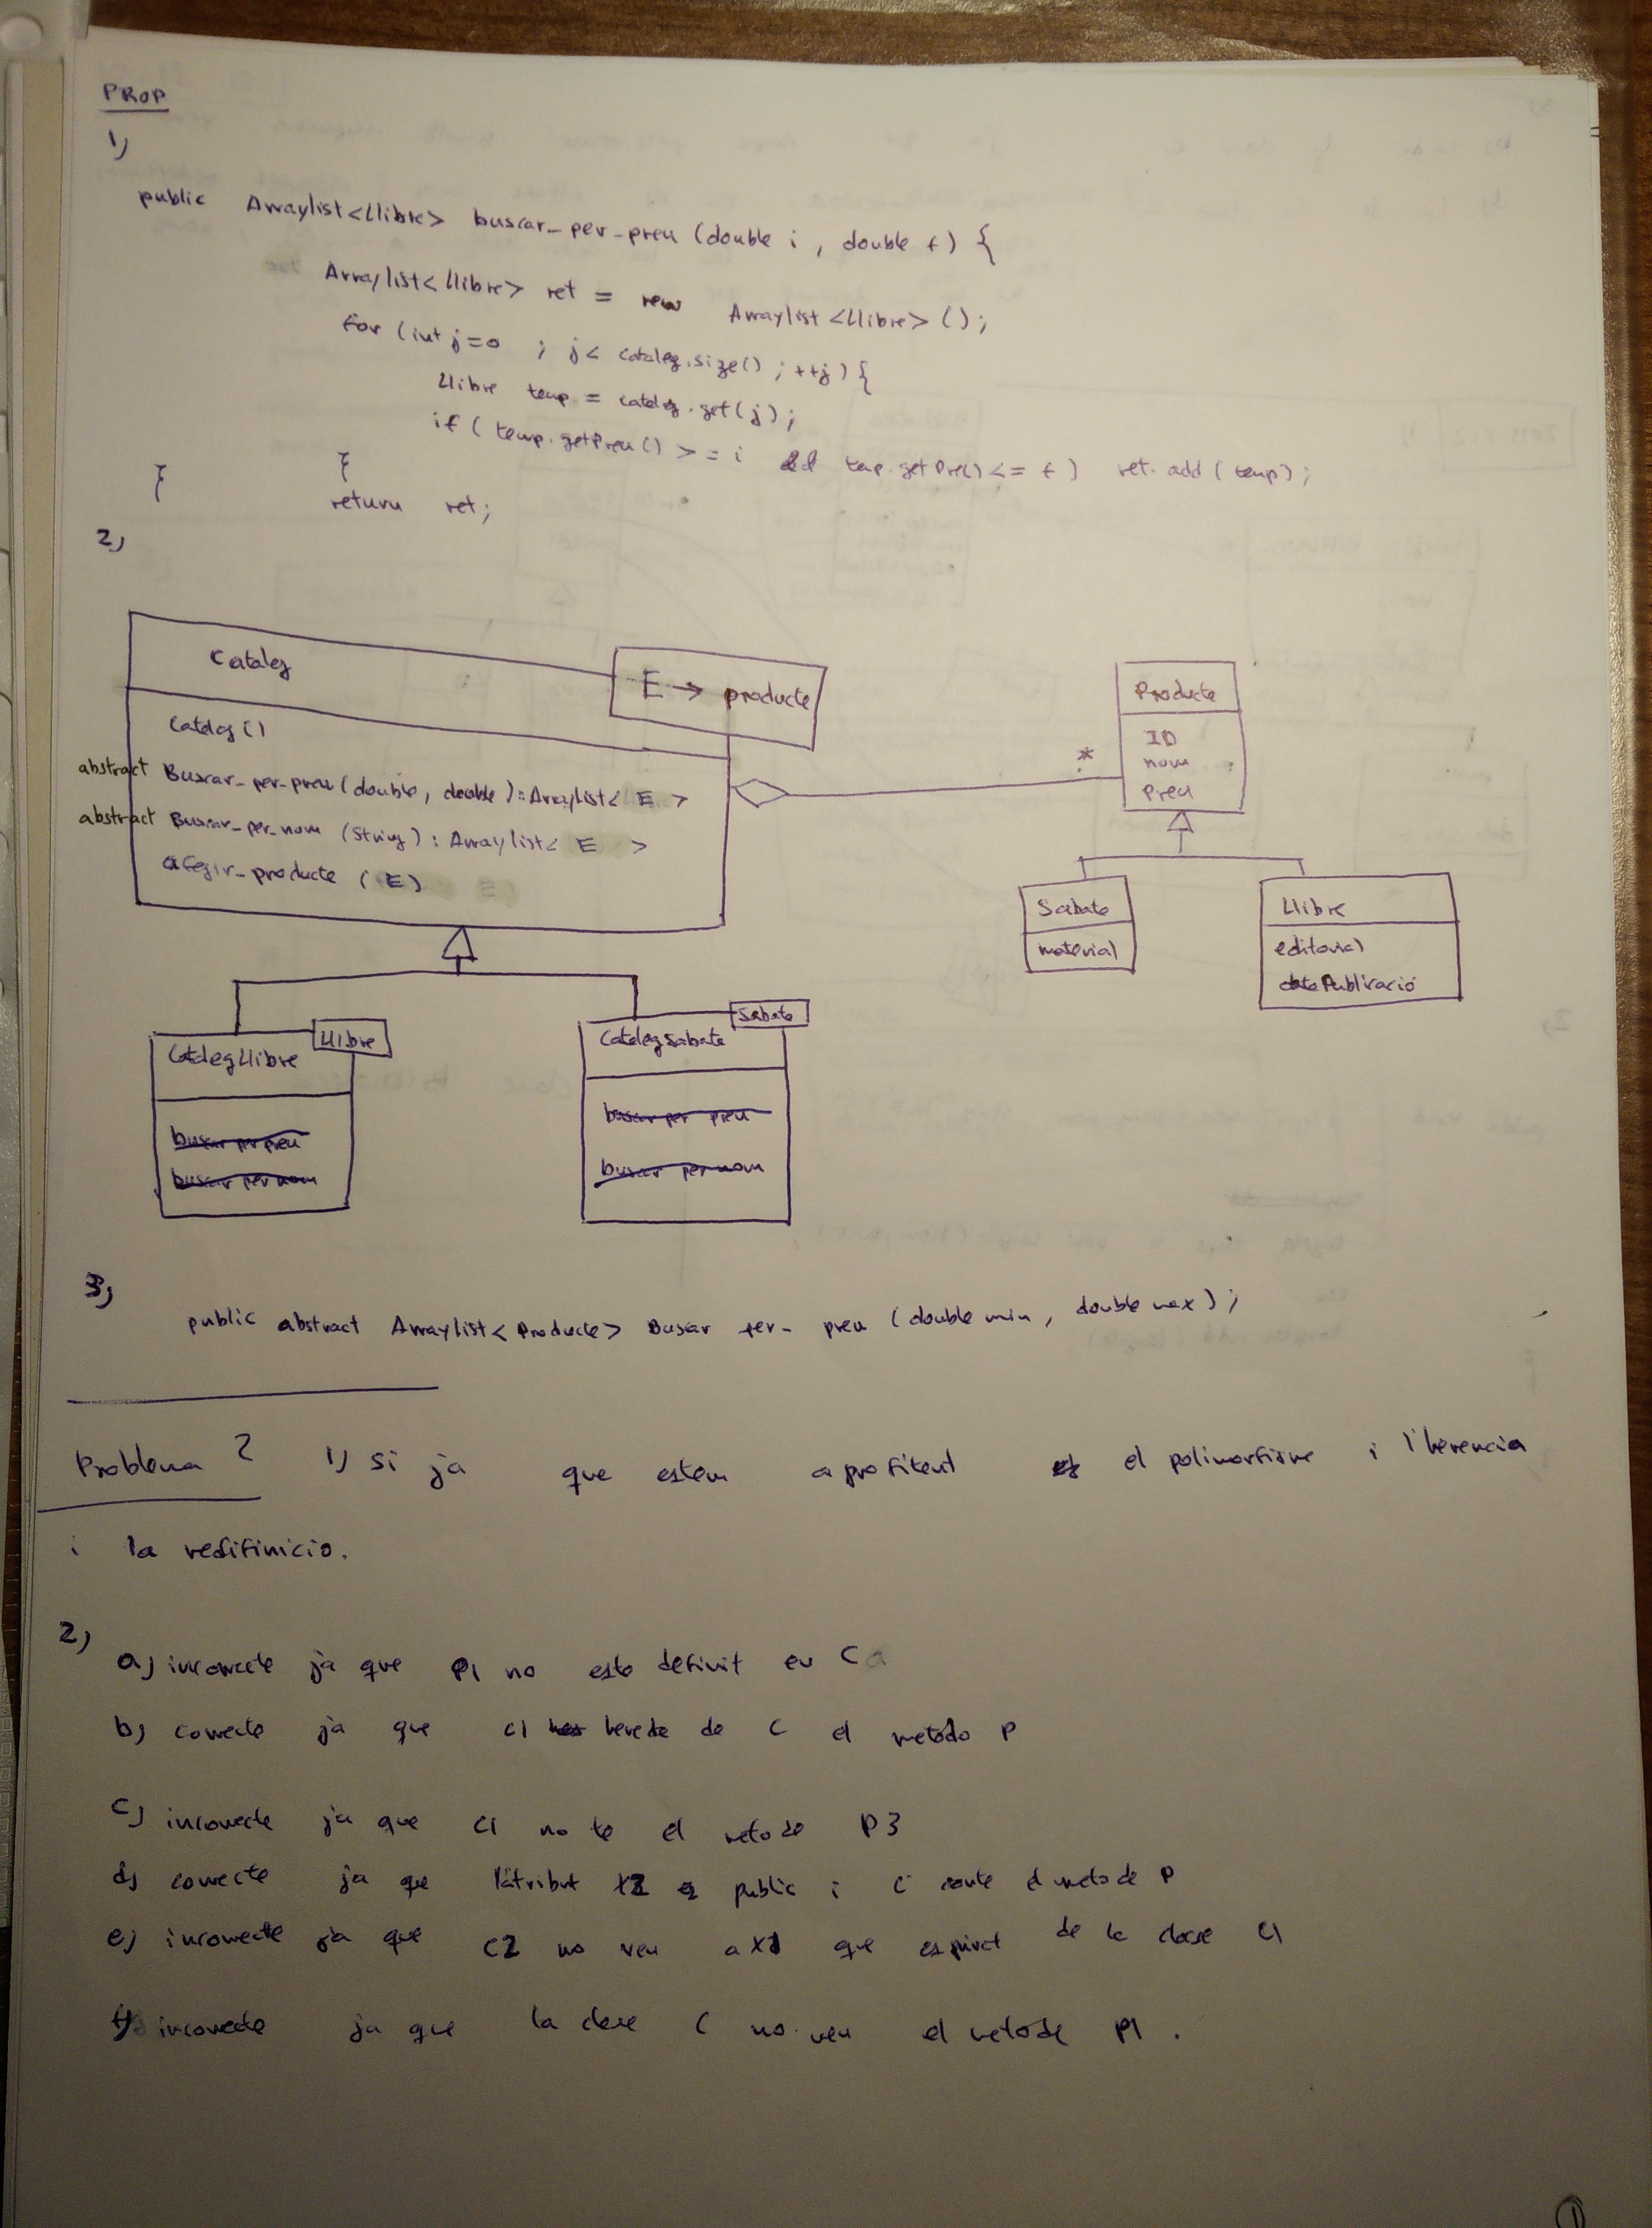 PROP
1)
public Arraylist<Llibre> buscar_per_preu (double i , double f) {
Arraylist<Llibre> ret = new Arraylist<Llibre> ();
for (int j=0 ; j< cataleg.size() ; ++j) {
Llibre temp = cataleg.get(j);
if ( temp.getPreu() >= i && temp.getPreu() <= f ) ret.add (temp);
}
} return ret;
2)
Cataleg
E → producte
Cataleg()
abstract Buscar_per_preu (double, double) : Arraylist< E >
abstract Buscar_per_nom (String) : Arraylist< E >
afegir_producte ( E )
*
Producte
ID
nom
preu
Sabata
material
Llibre
editorial
dataPublicació
Llibre
CatalegLlibre
buscar per preu
buscar per nom
Sabata
CatalegSabata
buscar per preu
buscar per nom
3)
public abstract Arraylist<Producte> Buscar per_ preu (double min, double max) ;
Problema 2 1) si ja que estem aprofitent el polimorfisme i l'herencia
i la redifinicio.
2)
a) incorrecte ja que p1 no esta definit en C
b) correcte ja que C1 hereda de C el metodo p
c) incorrecte ja que C1 no te el metode p3
d) correcte ja que l'atribut x2 es public i C conte el metode p
e) incorrecte ja que C2 no veu a x1 que es privat de la classe C1
f) incorrecte ja que la classe C no veu el metode p1 .
1